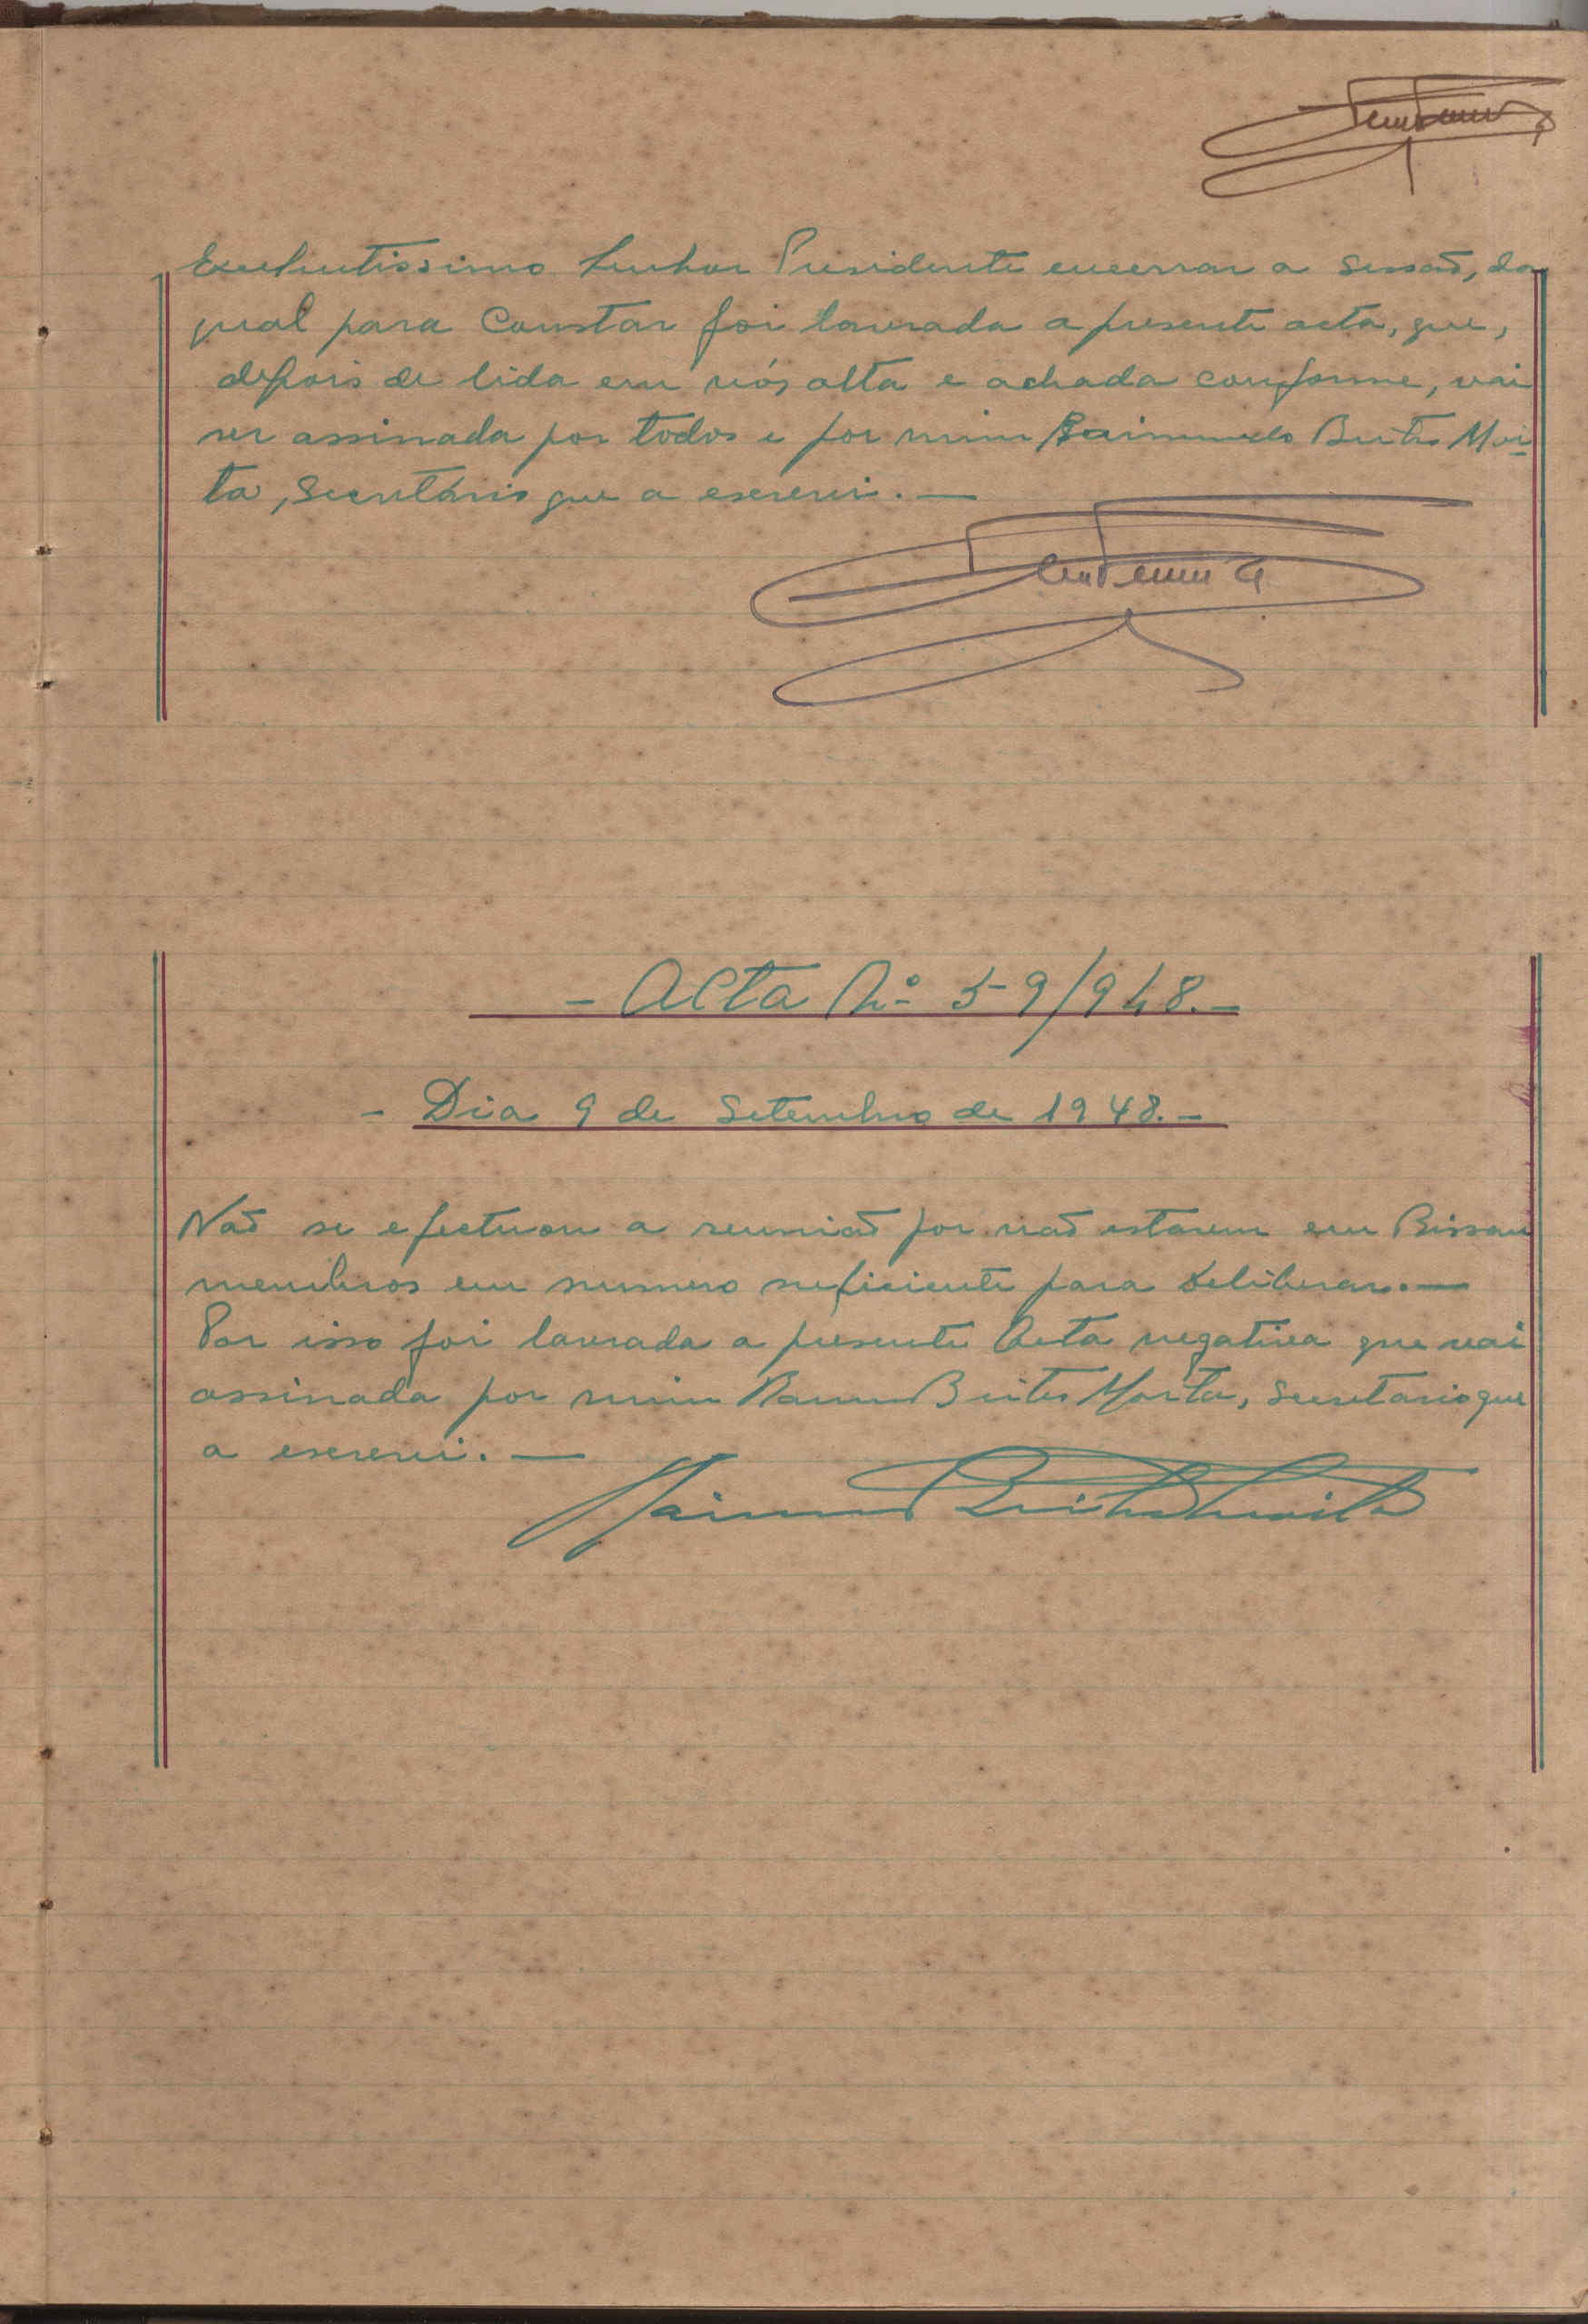 Excelentissimo Senhor Presidente encerrar a sessaõ, da
qual para constar foi lavrada a presente acta, que,
depois de lida em vós alta e achada conforme, vai
ser assinada por todos e por mim Raimundo Brites Moi-
ta, Secretário que a escrevi. —
- Acta N.º 59/948. -
- Dia 9 de Setembro de 1948. -
Naõ se efectuou a reuniaõ por naõ estarem em Bissau
membros em numero suficiente para deliberar. —
Por isso foi lavrada a presente Acta negativa que vai
assinada por mim Brites Moita, Secretario que
a escrevi. —